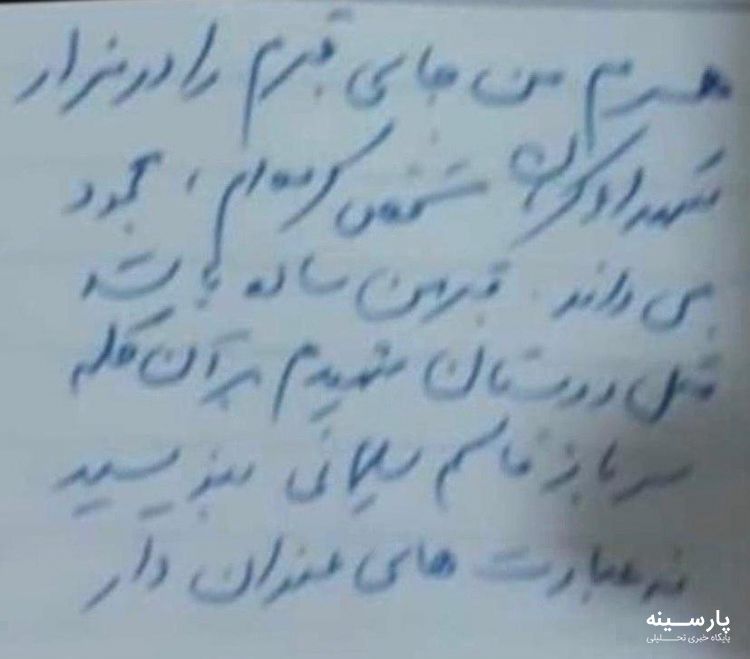 همسرم من جای قبرم را در مزار
شهداء کرمان مشخص کرده‌ام، محمود
می داند. قبر من ساده باشد
مثل دوستان شهیدم بر آن کلمه
سرباز قاسم سلیمانی بنویسید
نه عبارت های عنوان دار
پارسینه
پایگاه خبری تحلیلی